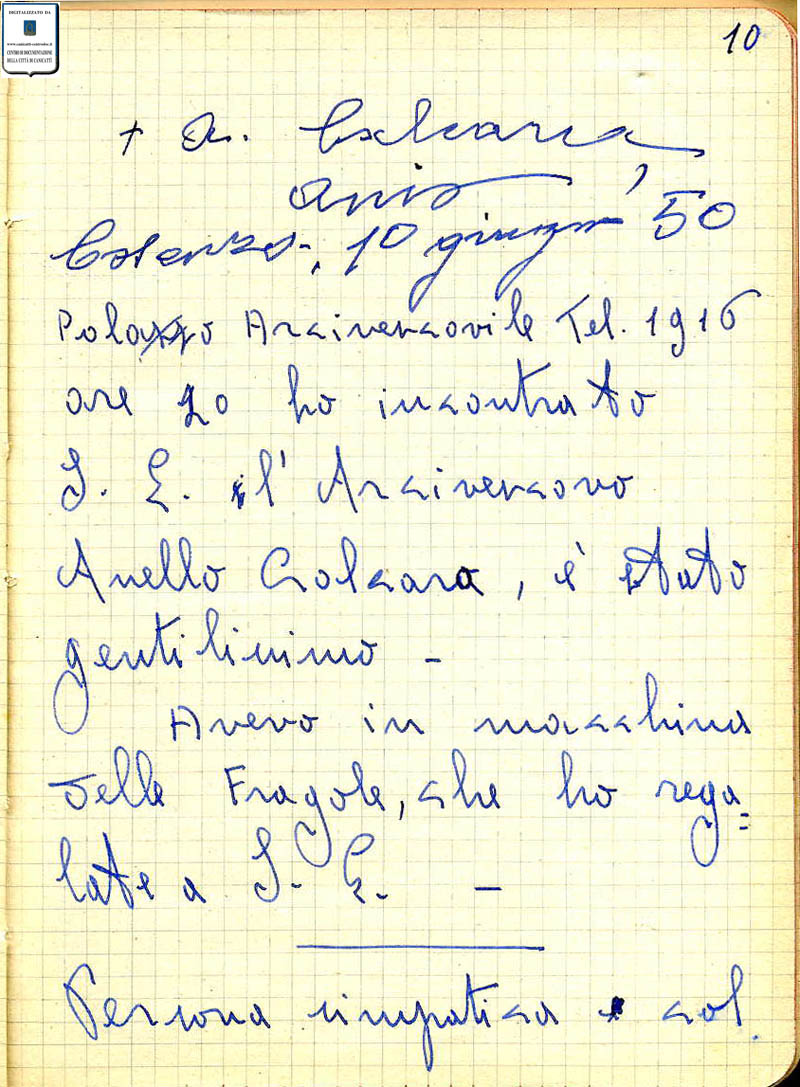 DIGITALIZZATO DA
www.canicatti-centrodoc.it
CENTRO DI DOCUMENTAZIONE
DELLA CITTÀ DI CANICATTÌ
10
+ A. Calcara,
Cosenza, 10 giugno 50
Palazzo Arcivescovile Tel. 1916
ore 20 ho incontrato
S. E. l' Arcivescovo
Anello Calcara, è stato
gentilissimo -
Avevo in macchina
delle Fragole, che ho rega=
late a S. E. -
Persona simpatica e col.